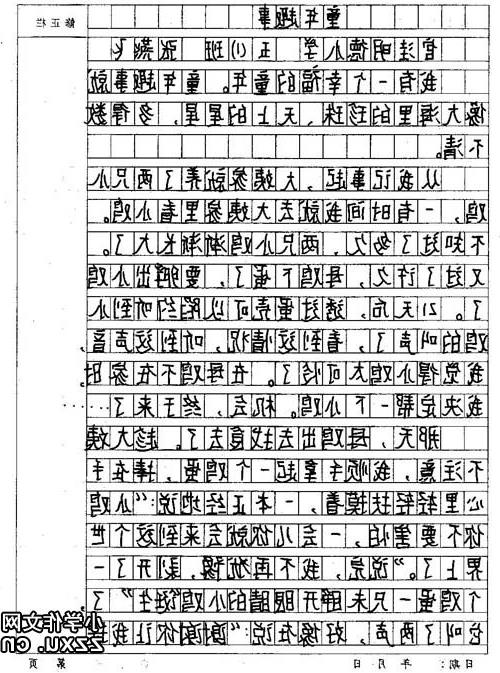 修正栏
童年趣事
明德小学 五(1)班 张燕
我有一个幸福的童年。童年趣事就
像大海里的珍珠，天上的星星，多得数
不清。
从我记事起，大姨家就养了两只小
鸡，一有时间我就去大姨家里看小鸡。
不知过了多久，两只小鸡渐渐长大了。
又过了许久，母鸡下蛋了，要孵出小鸡
了。21天后，透过蛋壳可以隐约听到小
鸡的叫声了，看到这情况，听到这声音，
我觉得小鸡太可怜了。在母鸡不在家时，
我决定帮一下小鸡。机会，终于来了……
那天，母鸡出去找食去了。趁大姨
不注意，我顺手拿起一个鸡蛋，捧在手
心里轻轻抚摸着，一本正经地说：“小鸡
你不要害怕，一会儿你就会来到这个世
界上了。”说完，我不再犹豫，剥开了一
个鸡蛋一只未睁开眼睛的小鸡“诞生”了
它叫了两声，好像在说：“谢谢你让我
小学作文网
zzxu.cn
日期: 年 月 日 第 页